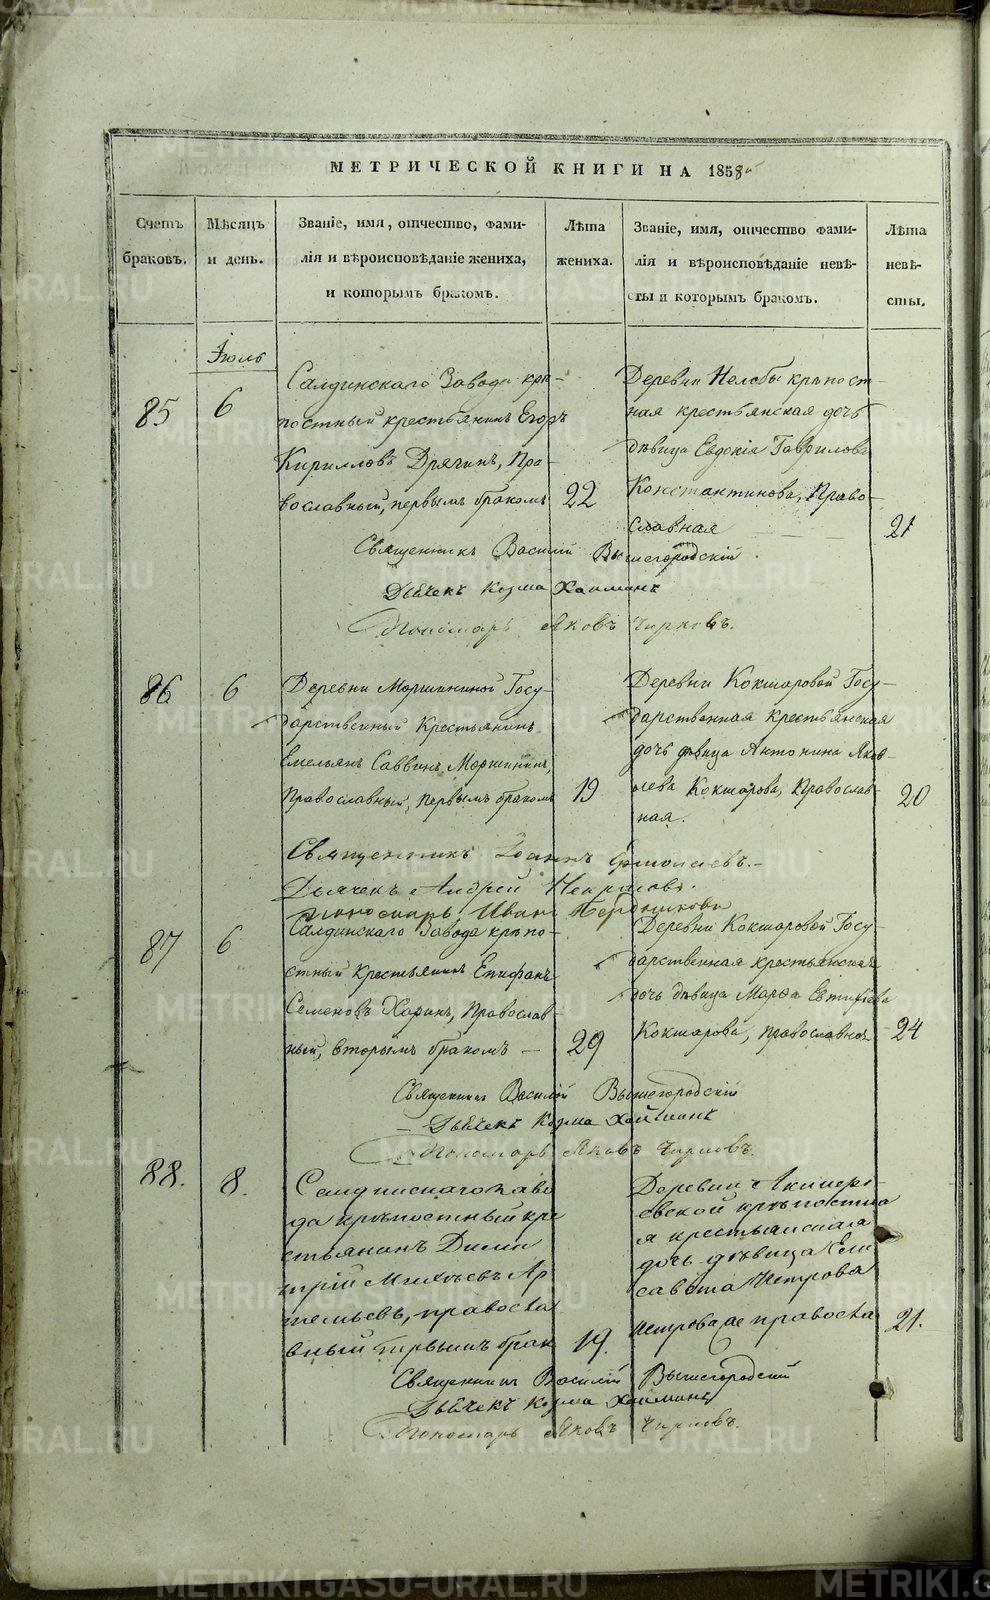 МЕТРИЧЕСКОЙ КНИГИ НА 1858
Счетъ браковъ.
Мѣсяцъ и день.
Званіе, имя, отчество, фами-
лія и вѣроисповѣданіе жениха,
и которымъ бракомъ.
Лѣта жениха.
Званіе, имя, отчество фами-
лія и вѣроисповѣданіе невѣ-
сты и которымъ бракомъ.
Лѣта невѣ-
сты.
Іюль
85
6
Салдинскаго Завода крѣ-
постный крестьянинъ Егоръ
Кирилловъ Дрягинъ, Пра-
вославный, первымъ бракомъ
22
Деревни Нелобы крѣпост-
ная крестьянская дочь
дѣвица Евдокія Гаврилова
Константинова, Право-
славная
21
Священникъ Василій Вышегородскій
Дьячекъ Козма Хайминъ
Пономарь Яковъ Чирковъ.
86
6
Деревни Моршининой Госу-
дарственный Крестьянинъ
Емельянъ Саввинъ Моршининъ,
Православный, первымъ бракомъ
19
Деревни Кокшаровой Госу-
дарственная крестьянская
дочь дѣвица Антонина Яков-
лева Кокшарова, Православ-
ная.
20
Священникъ Іоаннъ Ермолаевъ.
Дьячекъ Андрей Некрасовъ.
Пономарь Иванъ
87
6
Салдинскаго Завода крѣпо-
стный крестьянинъ Епифанъ
Семеновъ Харинъ, Православ-
ный, вторымъ бракомъ
29
Деревни Кокшаровой Госу-
дарственная крестьянская
дочь дѣвица Марѳа Евтифіева
Кокшарова, православная
24
Священникъ Василій Вышегородскій
Дьячекъ Козма Хайминъ
Пономарь Яковъ Чирковъ.
88.
8.
Салдинскаго заво
да крѣпостный кре
стьянинъ Дими
трій Михѣевъ Ар
темьевъ, правосла
вный первымъ брак
19.
Деревни Акинфі-
евской крѣпостна
я крестьянская
дочь дѣвица Ели
савета Петрова
Петрова же правосла
21.
Священникъ Василій Вышегородскій
Дьячекъ Козма Хайминъ
Пономарь Яковъ Чирковъ.
METRIKI.GASO-URAL.RU